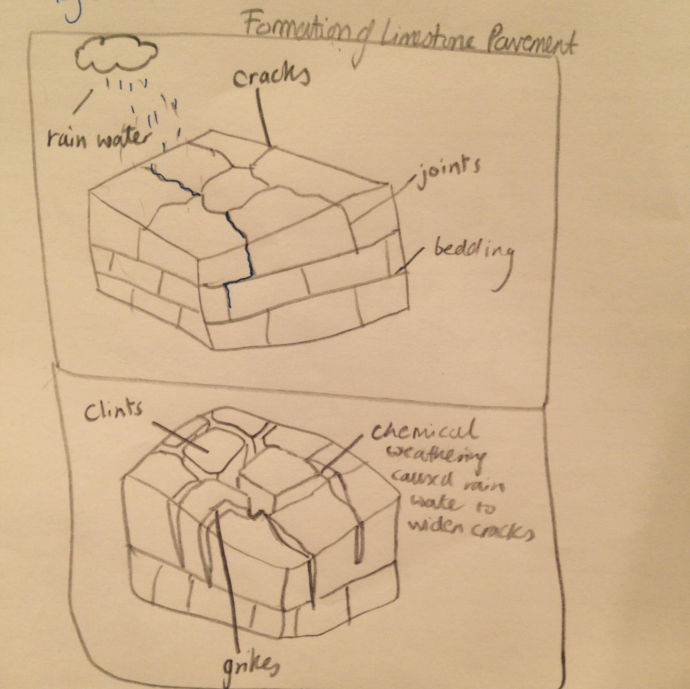 Formation of Limestone Pavement
cracks
rain water
joints
bedding
Clints
chemical
weathering
caused rain
water to
widen cracks
grikes